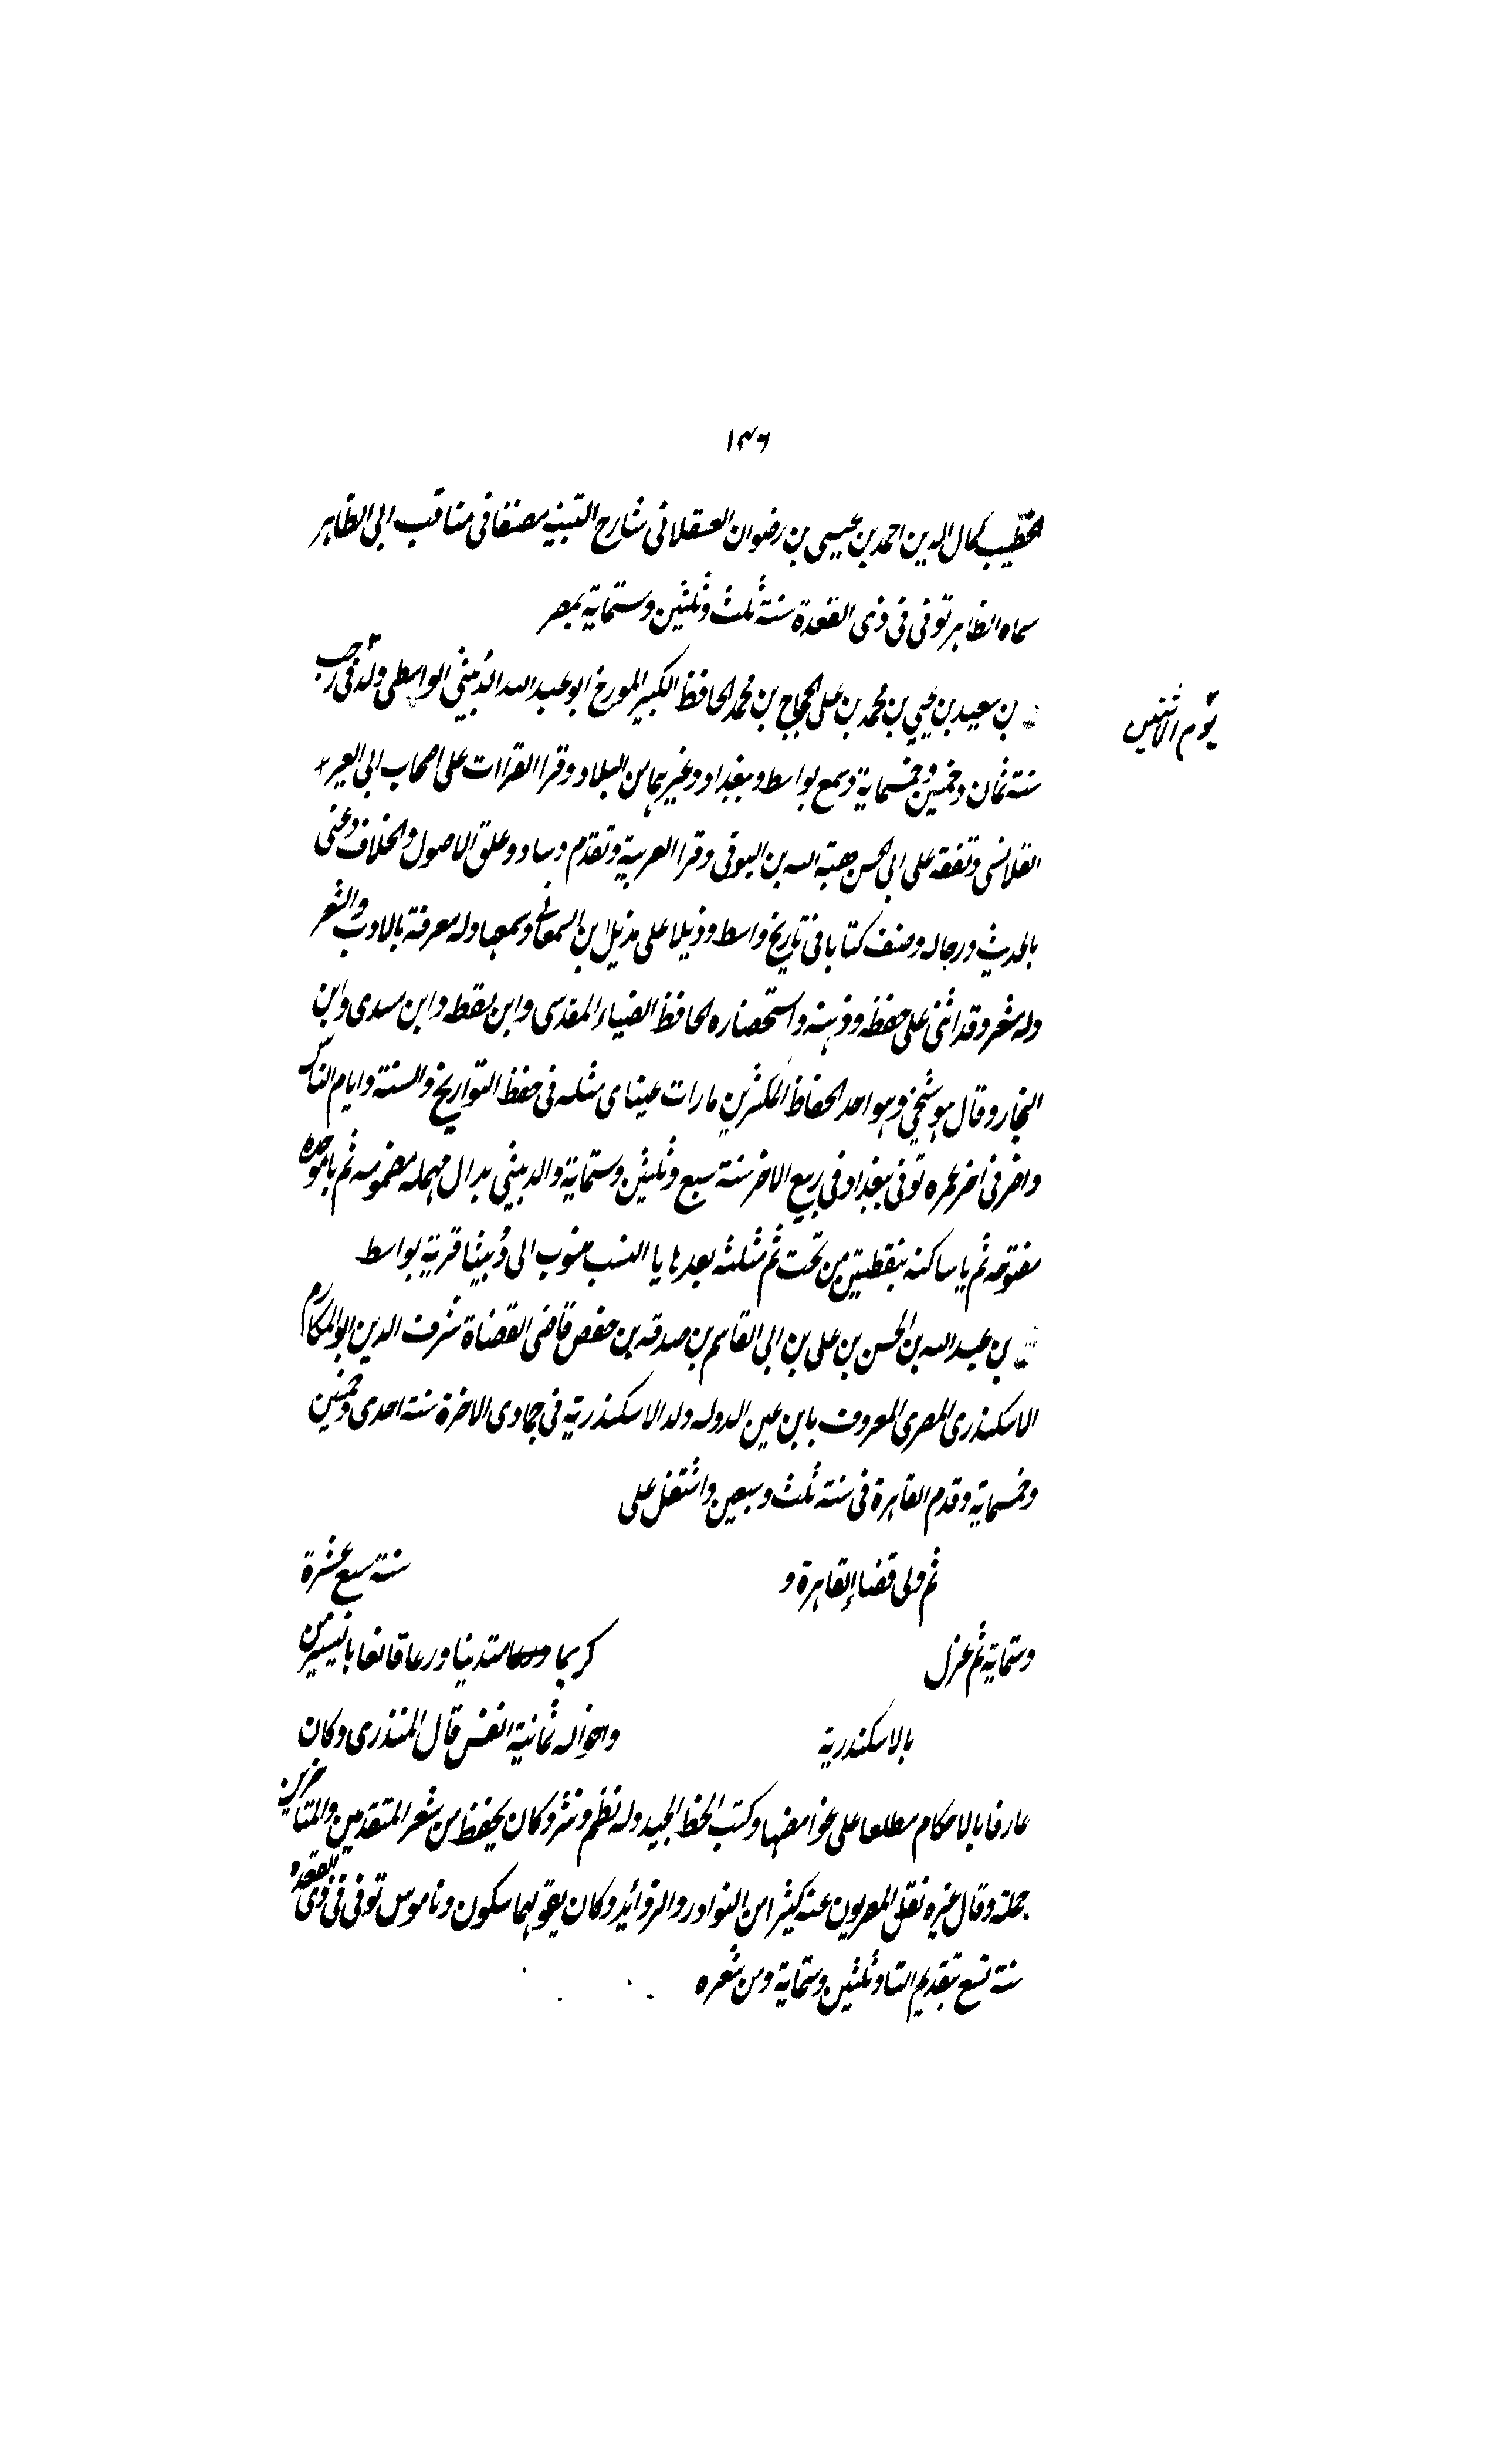 ١٤٦
لخطيب كمال الدين احمد بن عيسى بن رضوان العسقلانى شارح التنبيه مصنفا فى مناقب ابى الطاهر
سماه الظاهر توفى فى ذى القعدة سنة ثلث وثلثين وستماية بمصر
بن سعيد بن يحيى بن محمد بن على الحجاج بن محمد الحافظ الكبير المورخ ابو عبد الله الدُبيثى الواسطى ولد فى رجب
يوم الاثنين
سنة ثمان وخمسين وخمسماية وسمع بواسط وبغداد وغيرهما من البلاد وقرا القراات على اصحاب ابى العز
القلانسى وتفقه على ابى الحسن هبة الله بن البوقى وقرا العربية وتقدم وساد وعلق الاصول والخلاف وعنى
بالحديث ورجاله وصنف كتابا فى تاريخ واسط وذيلا على مذيل ابن السمعانى وسمعها وله معرفة بالادب والشعر
وله شعر وقد اثنى على حفظه وذهنه واستحضاره الحافظ الضياء المقدسى وابن نقطه وابن مسدى وابن
النجار وقال هو شيخى وهو احد الحفاظ المكثرين ما رات عيناى مثله فى حفظ التواريخ والسنة وايام الناس
واضر فى اخر عمره توفى ببغداد فى ربيع الاخر سنة سبع وثلثين وستماية والدبيثى بدال مهمله مضمومه ثم با موحده
مفتوحه ثم يا ساكنه بنقطتين من تحت ثم مثلثه بعدها يا النسب منسوب الى دُبيثا قرية بواسط
بن عبد الله بن الحسن بن على بن ابى القاسم بن صدقه بن حفص قاضى القضاة شرف الدين ابو المكارم
الاسكندرى المصرى المعروف بابن عين الدوله ولد الاسكندرية فى جمادى الاخرة سنة احدى وخمسين
وخمسماية وقدم القاهرة فى سنة ثلث وسبعين واشتغل على
ثم ولى قضاء القاهرة و سنة سبع عشرة
وستماية ثم عزل كريما متدينا ورعا قانعا باليسير من
بالاسكندرية واخواله ثمانية انفس قال المنذرى وكان
عارفا بالاحكام مطلعا على غوامضها وكتب الخط الجيد وله نظم ونثر وكان يحفظ من شعر المتقدمين والمتاخرين
جملة وقال غيره نقل المصريون عنه كثيرا من النوادر والزوائد وكان يقولهما سكون وناموس توفى فى ذى القعده
سنة تسع بتقديم التا وثلثين وستماية ومن شعره